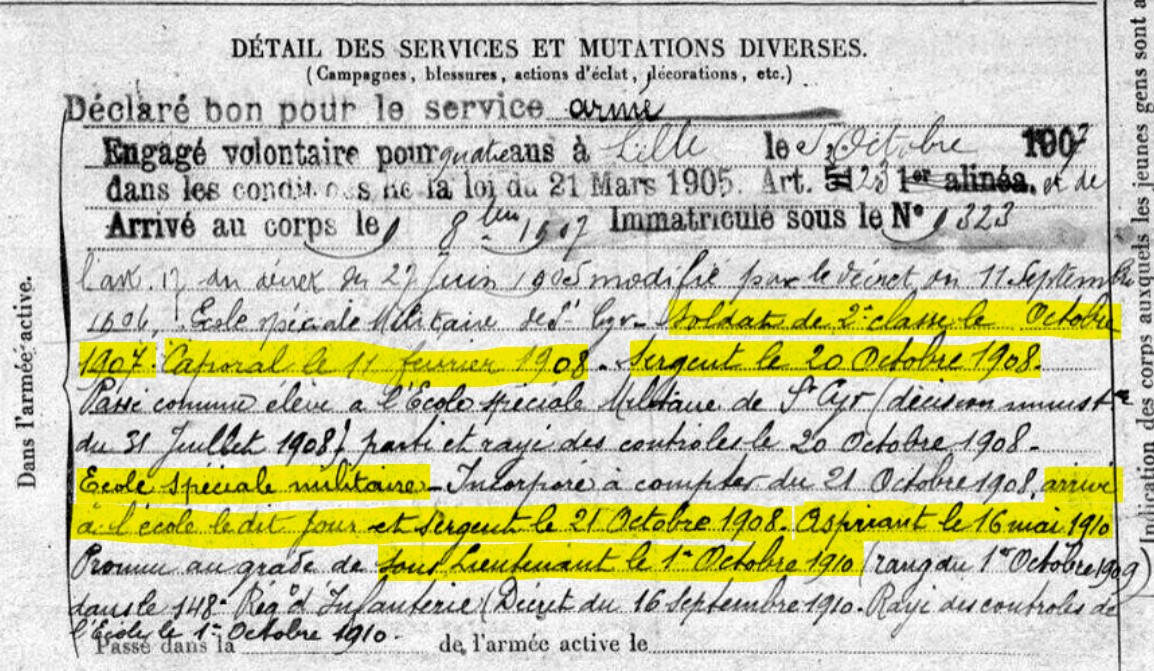 DÉTAIL DES SERVICES ET MUTATIONS DIVERSES.
(Campagnes, blessures, actions d'éclat, décorations, etc.)
Déclaré bon pour le service armé
Engagé volontaire pour quatre ans à Lille le Octobre 1907
dans les conditions de la loi du 21 Mars 1905. Art. 23 1er alinéa. et de
Arrivé au corps le 8bre 1907 Immatriculé sous le N° 1323
l'art. 17 du décret du 27 Juin 1905 modifié par le décret du 11 Septembre
1906, Ecole spéciale Militaire de St Cyr - Soldat de 2e classe le Octobre
1907. Caporal le 11 fevrier 1908. Sergent le 20 Octobre 1908.
Passé comme élève à l'Ecole spéciale Militaire de St Cyr (décision minist
du 31 Juillet 1908) parti et rayé des controles le 20 Octobre 1908 -
Ecole spéciale militaire - Incorporé à compter du 21 Octobre 1908, arrivé
à l'école le dit jour et sergent le 21 Octobre 1908. Aspirant le 16 mai 1910
Promu au grade de sous Lieutenant le 1er Octobre 1910 (rang du 1er Octobre 1909)
dans le 148e Régt d'Infanterie (Décret du 16 septembre 1910. Rayé des controles de
l'Ecole le 1er Octobre 1910.
Passé dans la de l'armée active le
Dans l'armée active.
des corps auxquels les jeunes gens sont